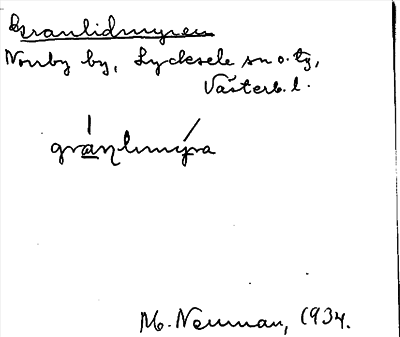 Granlidmyren
Norrby by, Lycksele sn o. tg,
Västerb. l.
granlmyra
M. Neuman, 1934.